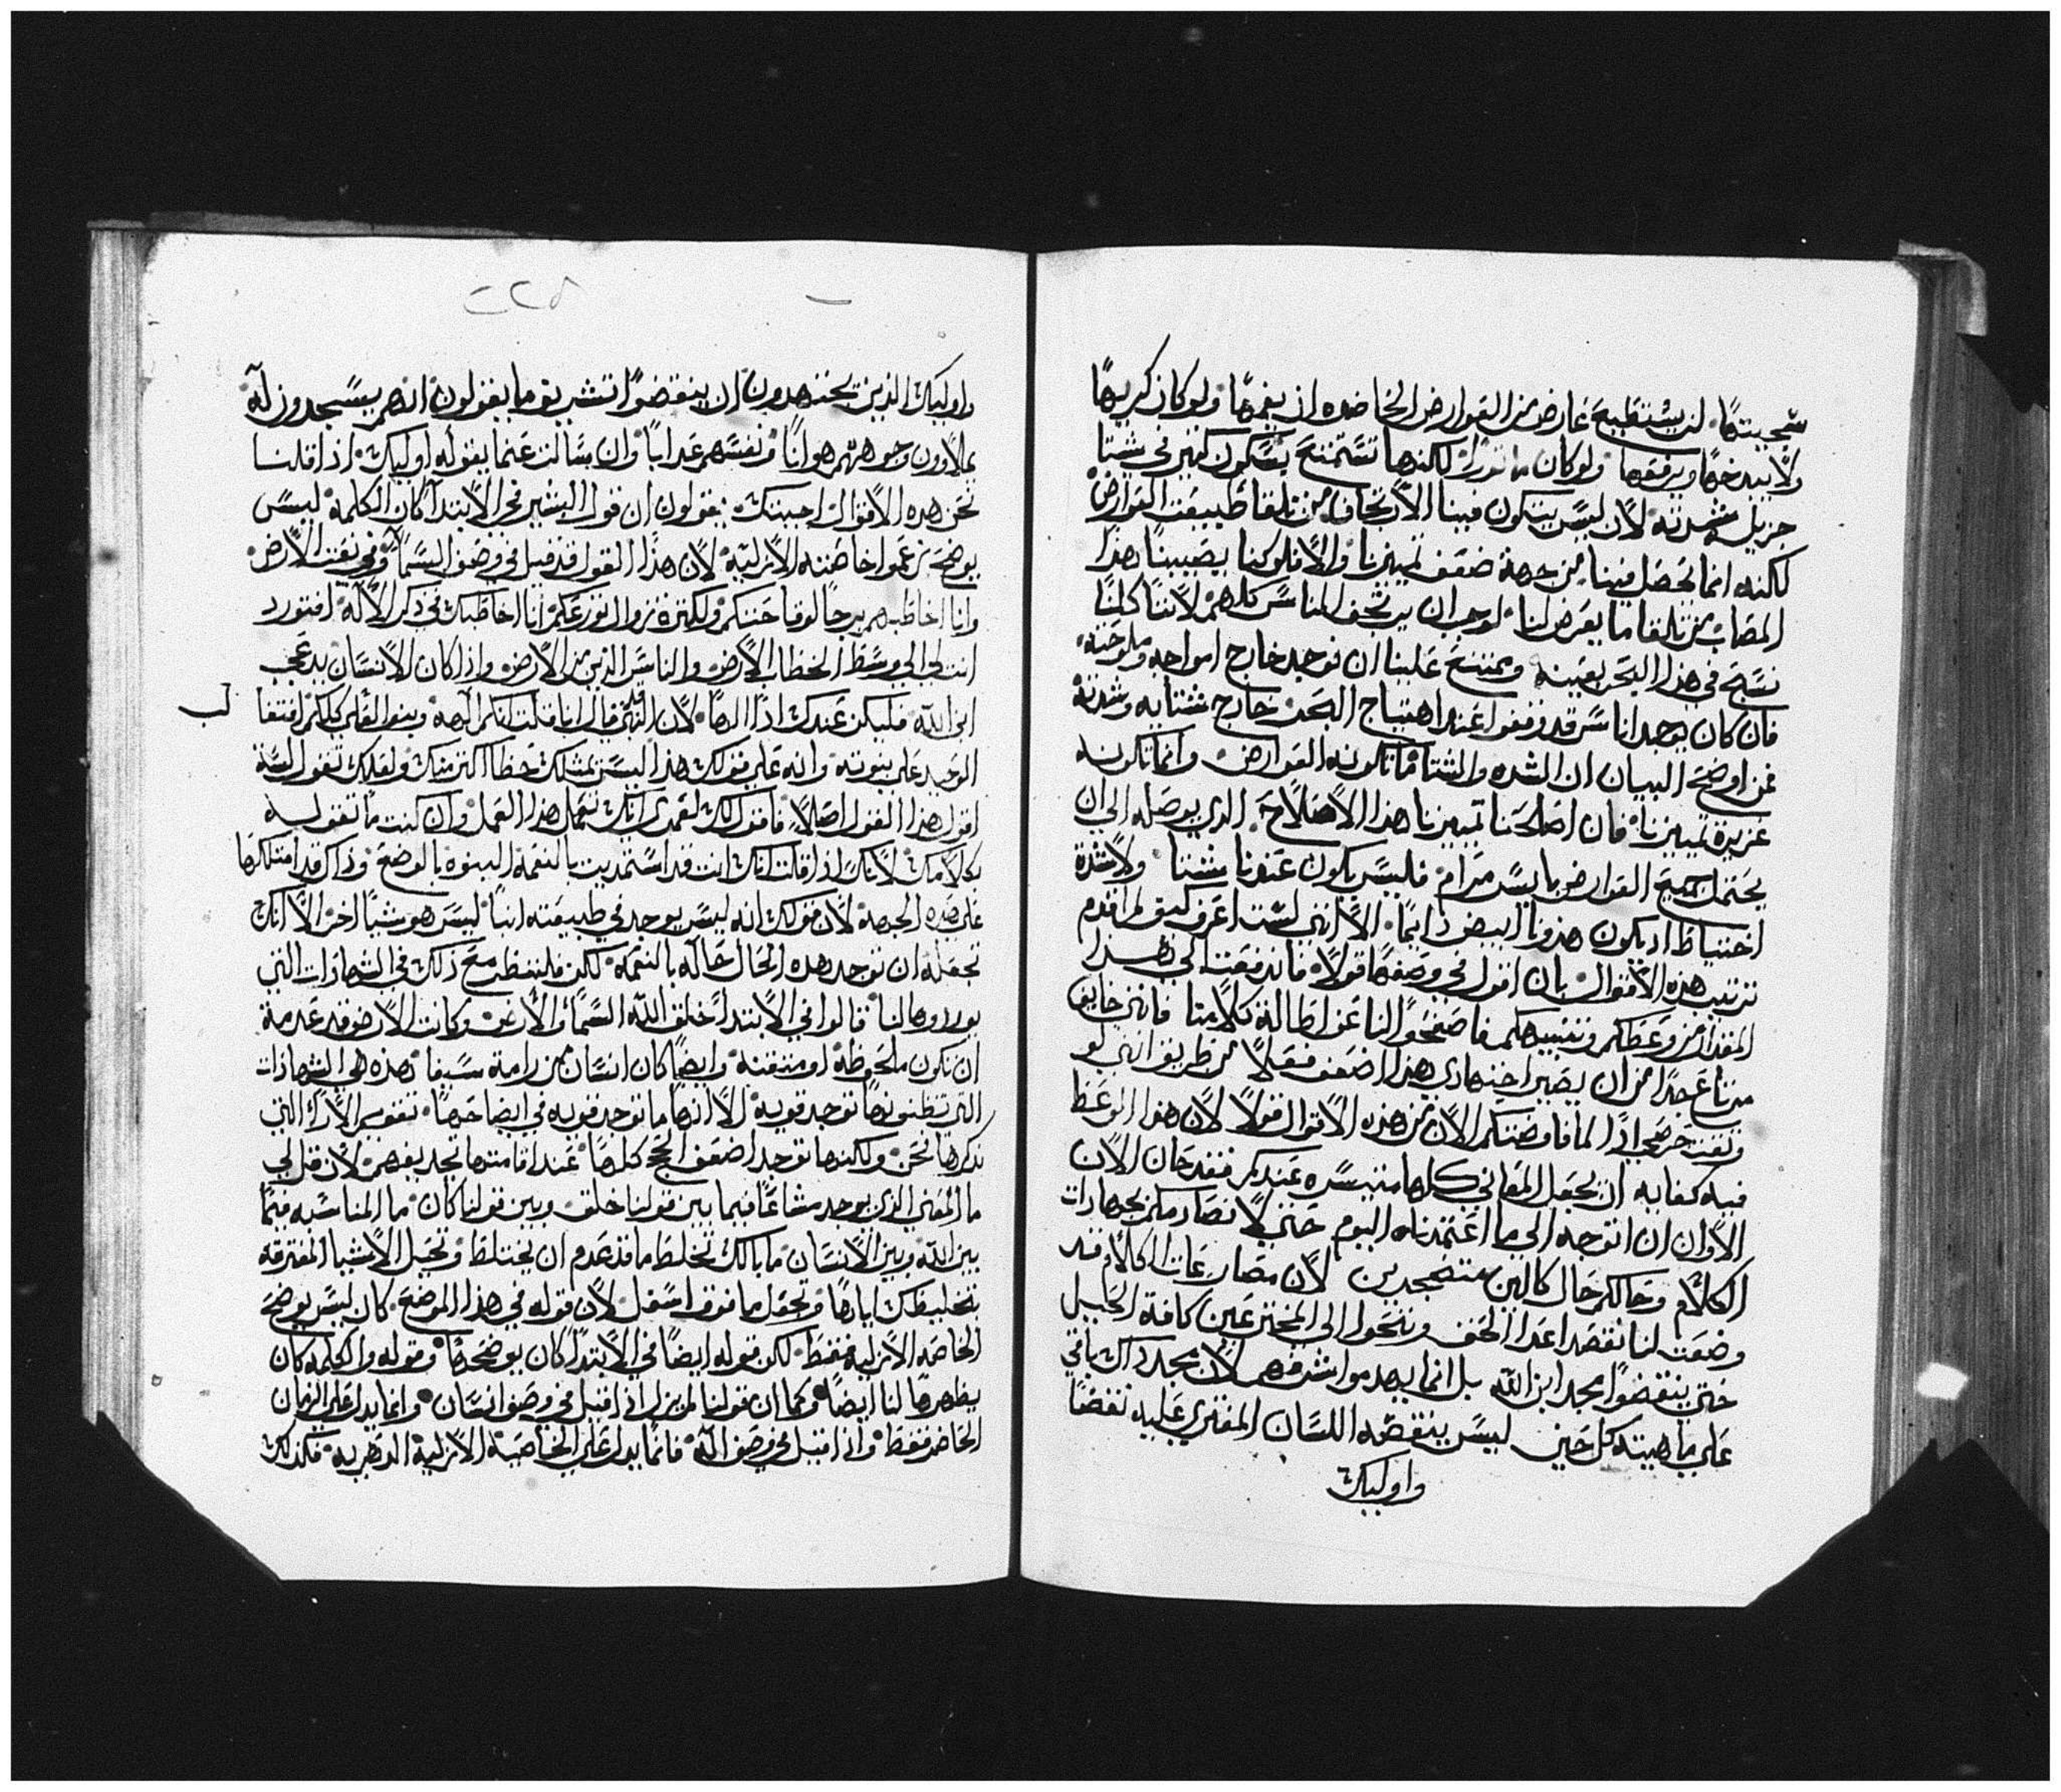 شجيتها لن يستطيع عارض من العوارض الحاضره ان يغمها ولو كان كريها
ولا يبدخها ويرفعها ولو كان ماثورا لكنها تستمتع بسكون كثير في شتا
جزيل شدته لان ليس يتكون فينا الارتجاف من تلقا طبيعة العوارض
لكنه انما يحصل فينا من جهة ضعف تمييزنا والا فلو كنا يصيبنا هذا
المصاب من تلقا ما يعرض لنا لوجب ان يرتجف الناس كلهم لاننا كلنا
نسبح في هذا البحر بعينه ويمتنع علينا ان نوجد خارج امواجه وملوحته
فان كان يوجد اناس قد وقفوا عند اهتياج البحر خارج شتايه وشدته
فمن اوضح البيان ان الشده والشتا ما تكونه العوارض وانما تكونه
غريزة تمييزنا فان اصلحنا تمييزنا هذا الاصلاح الذي يوصله الى ان
يحتمل جميع العوارض بايسر مرام فليس يكون عندنا شتا ولا شدة
اختباط اذ يكون هدونا ابيض دايما الا انني لست اعرف كيف لم اقدم
ترتيب هذه الاقوال بان اقول في وصفها قولا فاندفعت الى هذا
المقدار من وعظكم وتنبيهكم فاصفحوا لنا عن اطالة كلامنا فانني خايف
مرتاع جدا من ان يصير اجتهادي هذا اضعف فعلا من طريق انني لو
وثقت حرصي اذا لما فاوضتكم الان من هذه الاقوال قولا لان هذا الوعظ
فيه كفايه ان يجعل المعاني كلها متيسره عندكم فقد حان الان
الاوان ان نتوجه الى ما اعتمدناه اليوم حتى لا نصادمكم بجهادات
الكلام وحالكم حال كالين متضجرين لان مصارعات الكلام قد
وضعت لنا نقصد اعدا الحق وننتحوا الى المخترعين كافة الحيل
حتى ينقضوا مجد ابن الله بل انما يهدموا شرفهم لان مجد ذاك باقي
على ماهيته كل حين ليس ينقضه اللسان المفتري عليه نقضا
واوليك
٢٢٥
واوليك الذين يجتهدون ان ينقضوا تشريف ما يقولون انهم يسجدون له
يملاوون وجوههم هوانا ونفسهم عدابا وان سالت عما يقوله اوليك اذا قلنا
نحن هذه الاقوال اجبتك يقولون ان قول البشير في الابتدا كان الكلمه ليس
يوضح زعموا خاصته الازليه لان هذا القول قد قيل في وصف السما وفي نعت الارض
انت لي الى وسط الخطاب الارض والناس الذين من الارض واذا كان الانسان يدعى
ابن الله فليكن عندك اذا الها لان النبي قال انا قلت انكم الهة وبنو العلي كلكم افتقا
الوحيد على بنوته واله على قولك هذا اليس بمثلك حظا اكثر منك ولعلك تقول لست
اقول هذا القول اصلا فاقول لك لعمري انك تعمل هذا العمل وان كنت ما تقوله
بكلامك لانك اذا قلت انك انت قد استمديت بالنعمه البنوه بالوضع وذاك قد امتلكها
على هذه الجهة لان قولك انه ليس يوجد في طبيعته ابنا ليس هو شيا اخر الا انك
تجعله ان توجد هذه الحال حاله بالنعمه لكن فلننظر مع ذلك في الشهادات التي
يوردوها لنا قالوا في الابتدا خلق الله السما والارض وكانت الارض قد عدمة
ان تكون ملحوظة او متقنه وايضا كان انسان من رامة سيفا فهذه هي الشهادات
التي تظنونها توجد قويه الا انها ما توجد قويه في ايضاحها تقويم الارا التي
نذكرها نحن ولكنها توجد اضعف الحجج كلها عند اقامتها تجديفهم لان قل لي
ما المعنى الذي يوجد مشاعا فيما بين قولنا خلق وبين قولنا كان ما المناسبه فيما
بين الله وبين الانسان ما بالك تخلط ما قد عدم ان يختلط وتحيل الاشيا المفترقه
بتخليطك اياها وتجعل ما فوق اسفل لان قوله في هذا الموضع كان ليس يوضح
الخاصه الازليه فقط لكن قوله ايضا في الابتدا كان يوضحها وقوله والكلمه كان
يظهرها لنا ايضا وكما ان قولنا لم يزل اذا قيل في وصف انسان وانما يدل على الزمان
الحاضر فقط واذا قيل في وصف الله فانما يدل على الخاصية الازلية الدهريه فكذلك